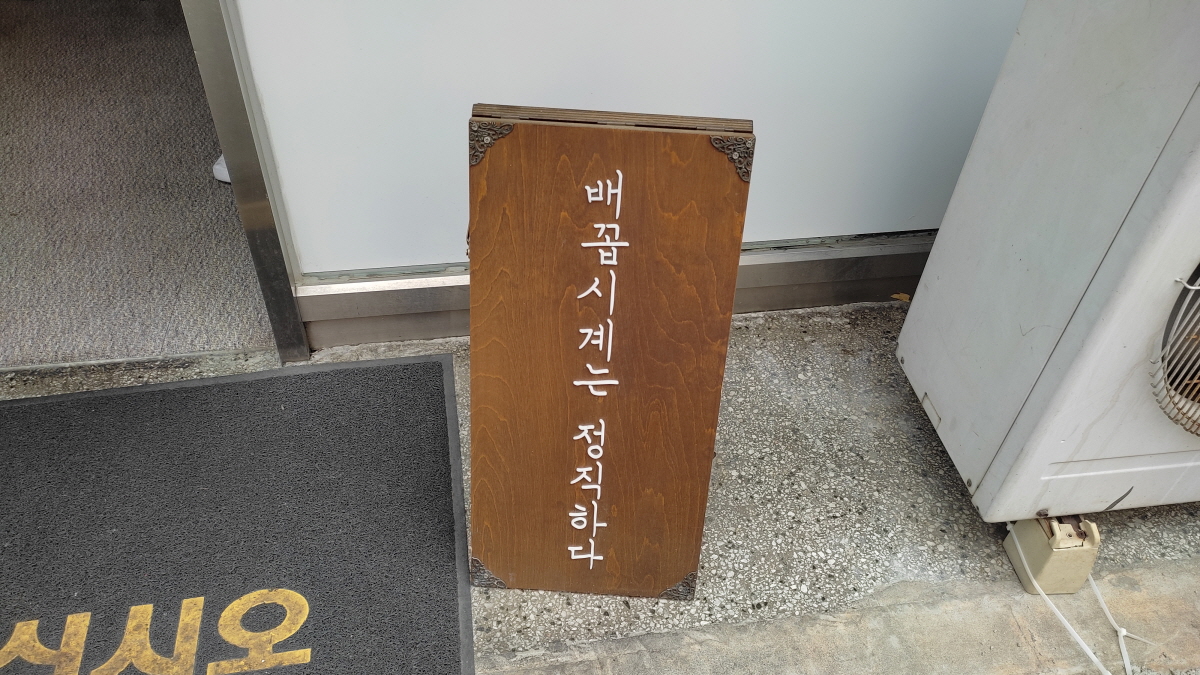 배꼽시계는 정직하다
시오